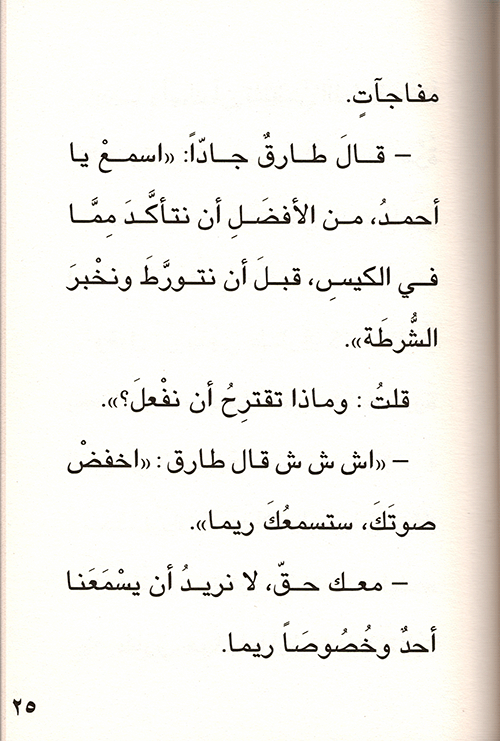 مفاجآتٍ.
– قـالَ طـارقٌ جـادّاً: «اسمـعْ يا
أحمـدُ، مـن الأفضَـلِ أن نتأكَّـدَ مِمَّـا
فـي الكيسِ، قبـلَ أن نتـورَّطَ ونخْبرَ
الشُّرطَة».
قلتُ : وماذا تقترِحُ أن نفْعلَ؟».
– «اش ش ش قـال طـارق : «اخفـضْ
صوتَكَ، ستسمعُكَ ريما».
– معـك حـقّ، لا نريـدُ أن يسْمَعَنـا
أحدٌ وخُصُوصَاً ريما.
٢٥